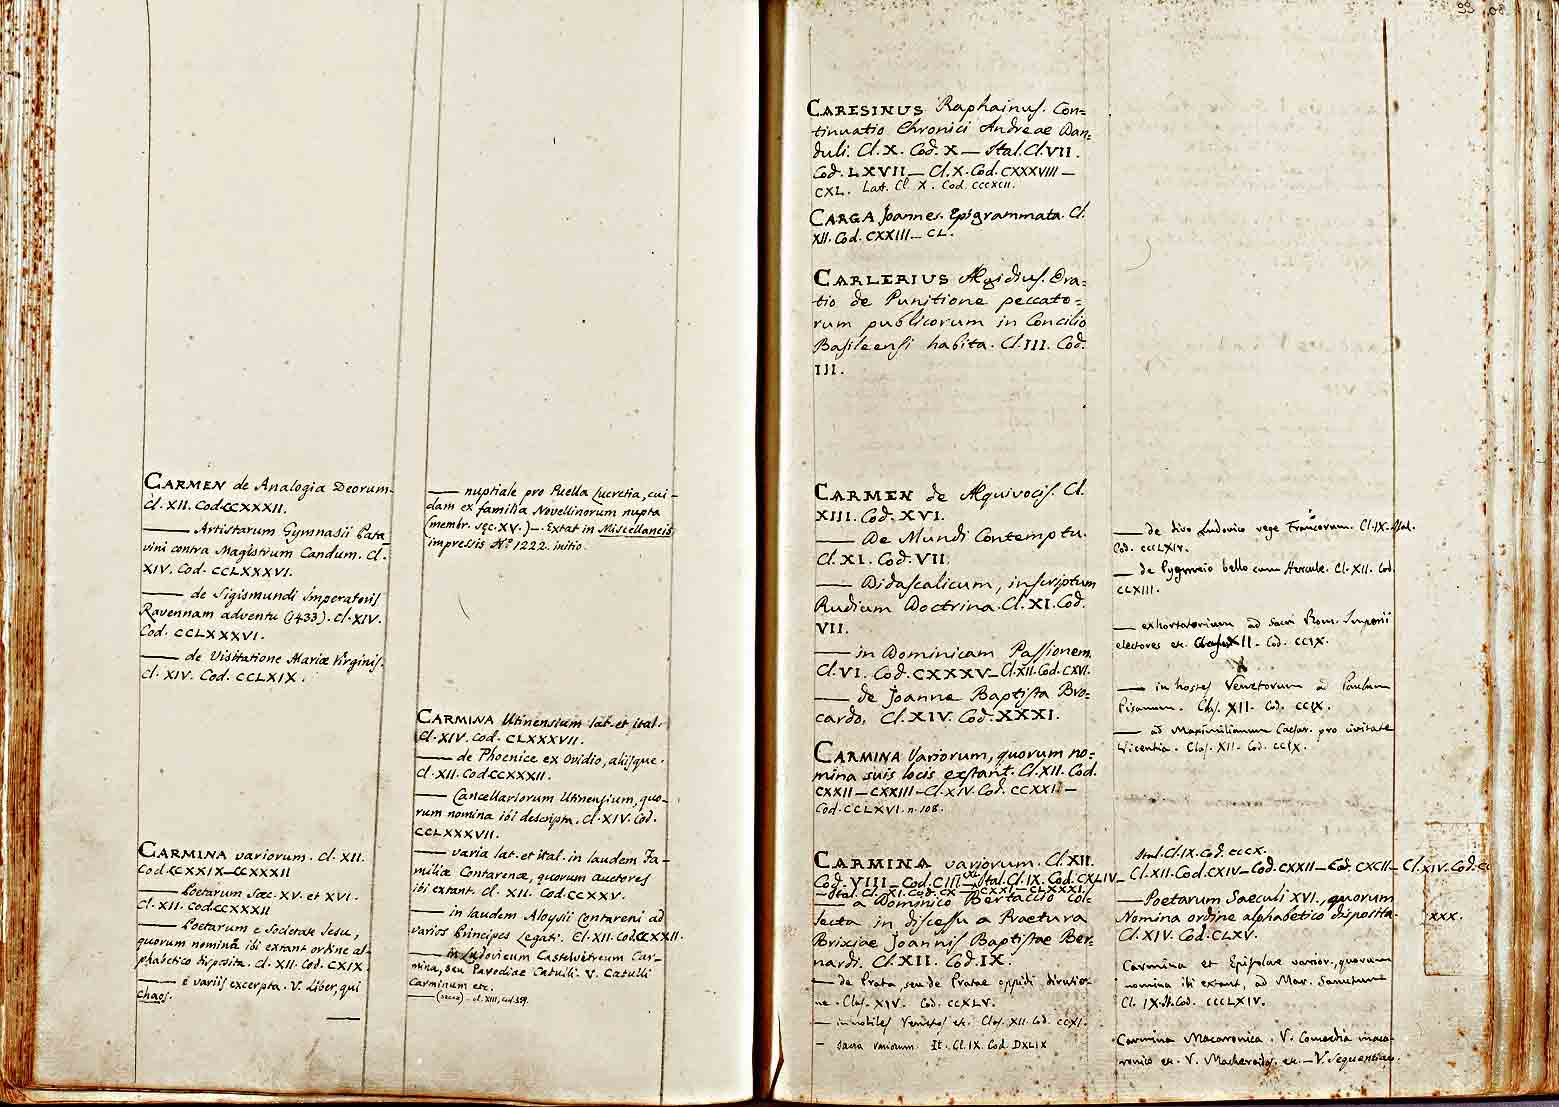 CARMEN de Analogia Deorum.
Cl. XII. Cod. CCXXXII.
—— Artistarum Gymnasii Pata-
vini contra Magistrum Candum. Cl.
XIV. Cod. CCLXXXVI.
—— de Sigismundi Imperatoris
Ravennam adventu (1433). Cl. XIV.
Cod. CCLXXXVI.
—— de Visitatione Mariæ Virginis.
Cl. XIV. Cod. CCLXIX.
CARMINA variorum. Cl. XII.
Cod. CCXXIX—CCXXXII
—— Poetarum Sæc. XV. et XVI.
Cl. XII. Cod. CCXXXII
—— Poetarum e Societate Jesu,
quorum nomina ibi extant ordine al-
phabetico disposita. Cl. XII. Cod. CXIX.
—— e variis excerpta. V. Liber, qui
chaos.
—— nuptiale pro Puella Lucretia, cui-
dam ex familia Novellinorum nupta
(membr. sec. XV.)—Extat in Miscellaneis
impressis Nº 1222. initio.
CARMINA Utinensium lat. et ital.
Cl. XIV. Cod. CLXXXVII.
—— de Phoenice ex Ovidio, aliisque.
Cl. XII. Cod. CCXXXII.
—— Cancellariorum Utinensium, quo-
rum nomina ibi descripta. Cl. XIV. Cod.
CCLXXXVII.
—— varia lat. et ital. in laudem Fa-
miliæ Contarenæ, quorum auctores
ibi extant. Cl. XII. Cod. CCXXV.
—— in laudem Aloysii Contareni ad
varios Principes Legati. Cl. XII. Cod. CCXXII.
—— in Ludovicum Castelvetreum Car-
mina, seu Parodiae Catulli. V. Catulli
Carminum etc.
—— (sacra) - cl. XIII, cod. 559.
CARESINUS Raphainus. Con=
tinuatio Chronici Andreae Dan=
duli. Cl. X. Cod. X — Ital. Cl. VII.
Cod. LXVII — Cl. X. Cod. CXXXVIII —
CXL. Lat. Cl. X. Cod. CCCXCII.
CARGA Joannes. Epigrammata. Cl.
XII. Cod. CXXIII — CL.
CARLERIUS Ægidius. Ora=
tio de Punitione peccato=
rum publicorum in Concilio
Basileensi habita. Cl. III. Cod.
III.
CARMEN de Æquivocis. Cl.
XIII. Cod. XVI.
—— De Mundi Contemptu.
Cl. XI. Cod. VII.
—— Didascalicum, inscriptum
Rudium Doctrina. Cl. XI. Cod.
VII.
—— in Dominicam Passionem.
Cl. VI. Cod. CXXXV — Cl. XII. Cod. CXVI.
—— de Joanne Baptista Bro=
cardo. Cl. XIV. Cod. XXXI.
CARMINA Variorum, quorum no=
mina suis locis exstant. Cl. XII. Cod.
CXXII — CXXIII — Cl. XIV. Cod. CCXXI —
Cod. CCLXVI. n. 108.
CARMINA variorum. Cl. XII.
Cod. VIII — Cod. CIII — Ital. Cl. IX. Cod. CXLIV — Cl. XII. Cod. CXIV — Cod. CXXII — Cod. CXCII — Cl. XIV. Cod.
— Ital. Cl. XI. Cod. CX — CXXI — CLXXXI.
—— a Dominico Bertaccio col=
lecta in discessu a Praetura
Brixiae Joannis Baptistae Ber=
nardi. Cl. XII. Cod. IX.
— de Prata, seu de Pratae oppidi
Clas. XIV. Cod. CCXLV.
— in nobiles Venetos etc. Clas. XII. Cod. CCXI.
— sacra variorum. It. Cl. IX. Cod. DXLIX
— de divo Ludovico rege Francorum. Cl. IX. Ital.
Cod. CCCLXIV.
— de Pygmeio bello cum Hercule. Cl. XII. Cod.
CCXIII.
— exhortatorium ad sacri Rom. Imperii
electores etc. XII. Cod. CCIX.
— in hostes Venetorum ad Paulum
Pisanum. Clas. XII. Cod. CCIX.
— ad Maximilianum Caesar. pro civitate
Vicentia. Clas. XII. Cod. CCIX.
Ital. Cl. IX. Cod. CCCX.
— Poetarum Saeculi XVI., quorum
Nomina ordine alphabetico disposita. XXX.
Cl. XIV. Cod. CLXV.
Carmina et Epistolae varior., quorum
nomina ibi extant, ad Mar. Sanutum
Cl. IX. It. Cod. CCCLXIV.
Carmina Macarronica. V. Comedia maca-
ronica etc. V. — V. Sequentiae.